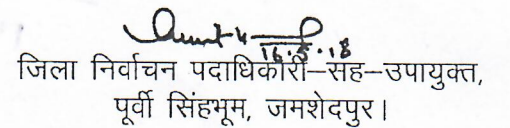 16.5.18
जिला निर्वाचन पदाधिकारी–सह–उपायुक्त,
पूर्वी सिंहभूम, जमशेदपुर।